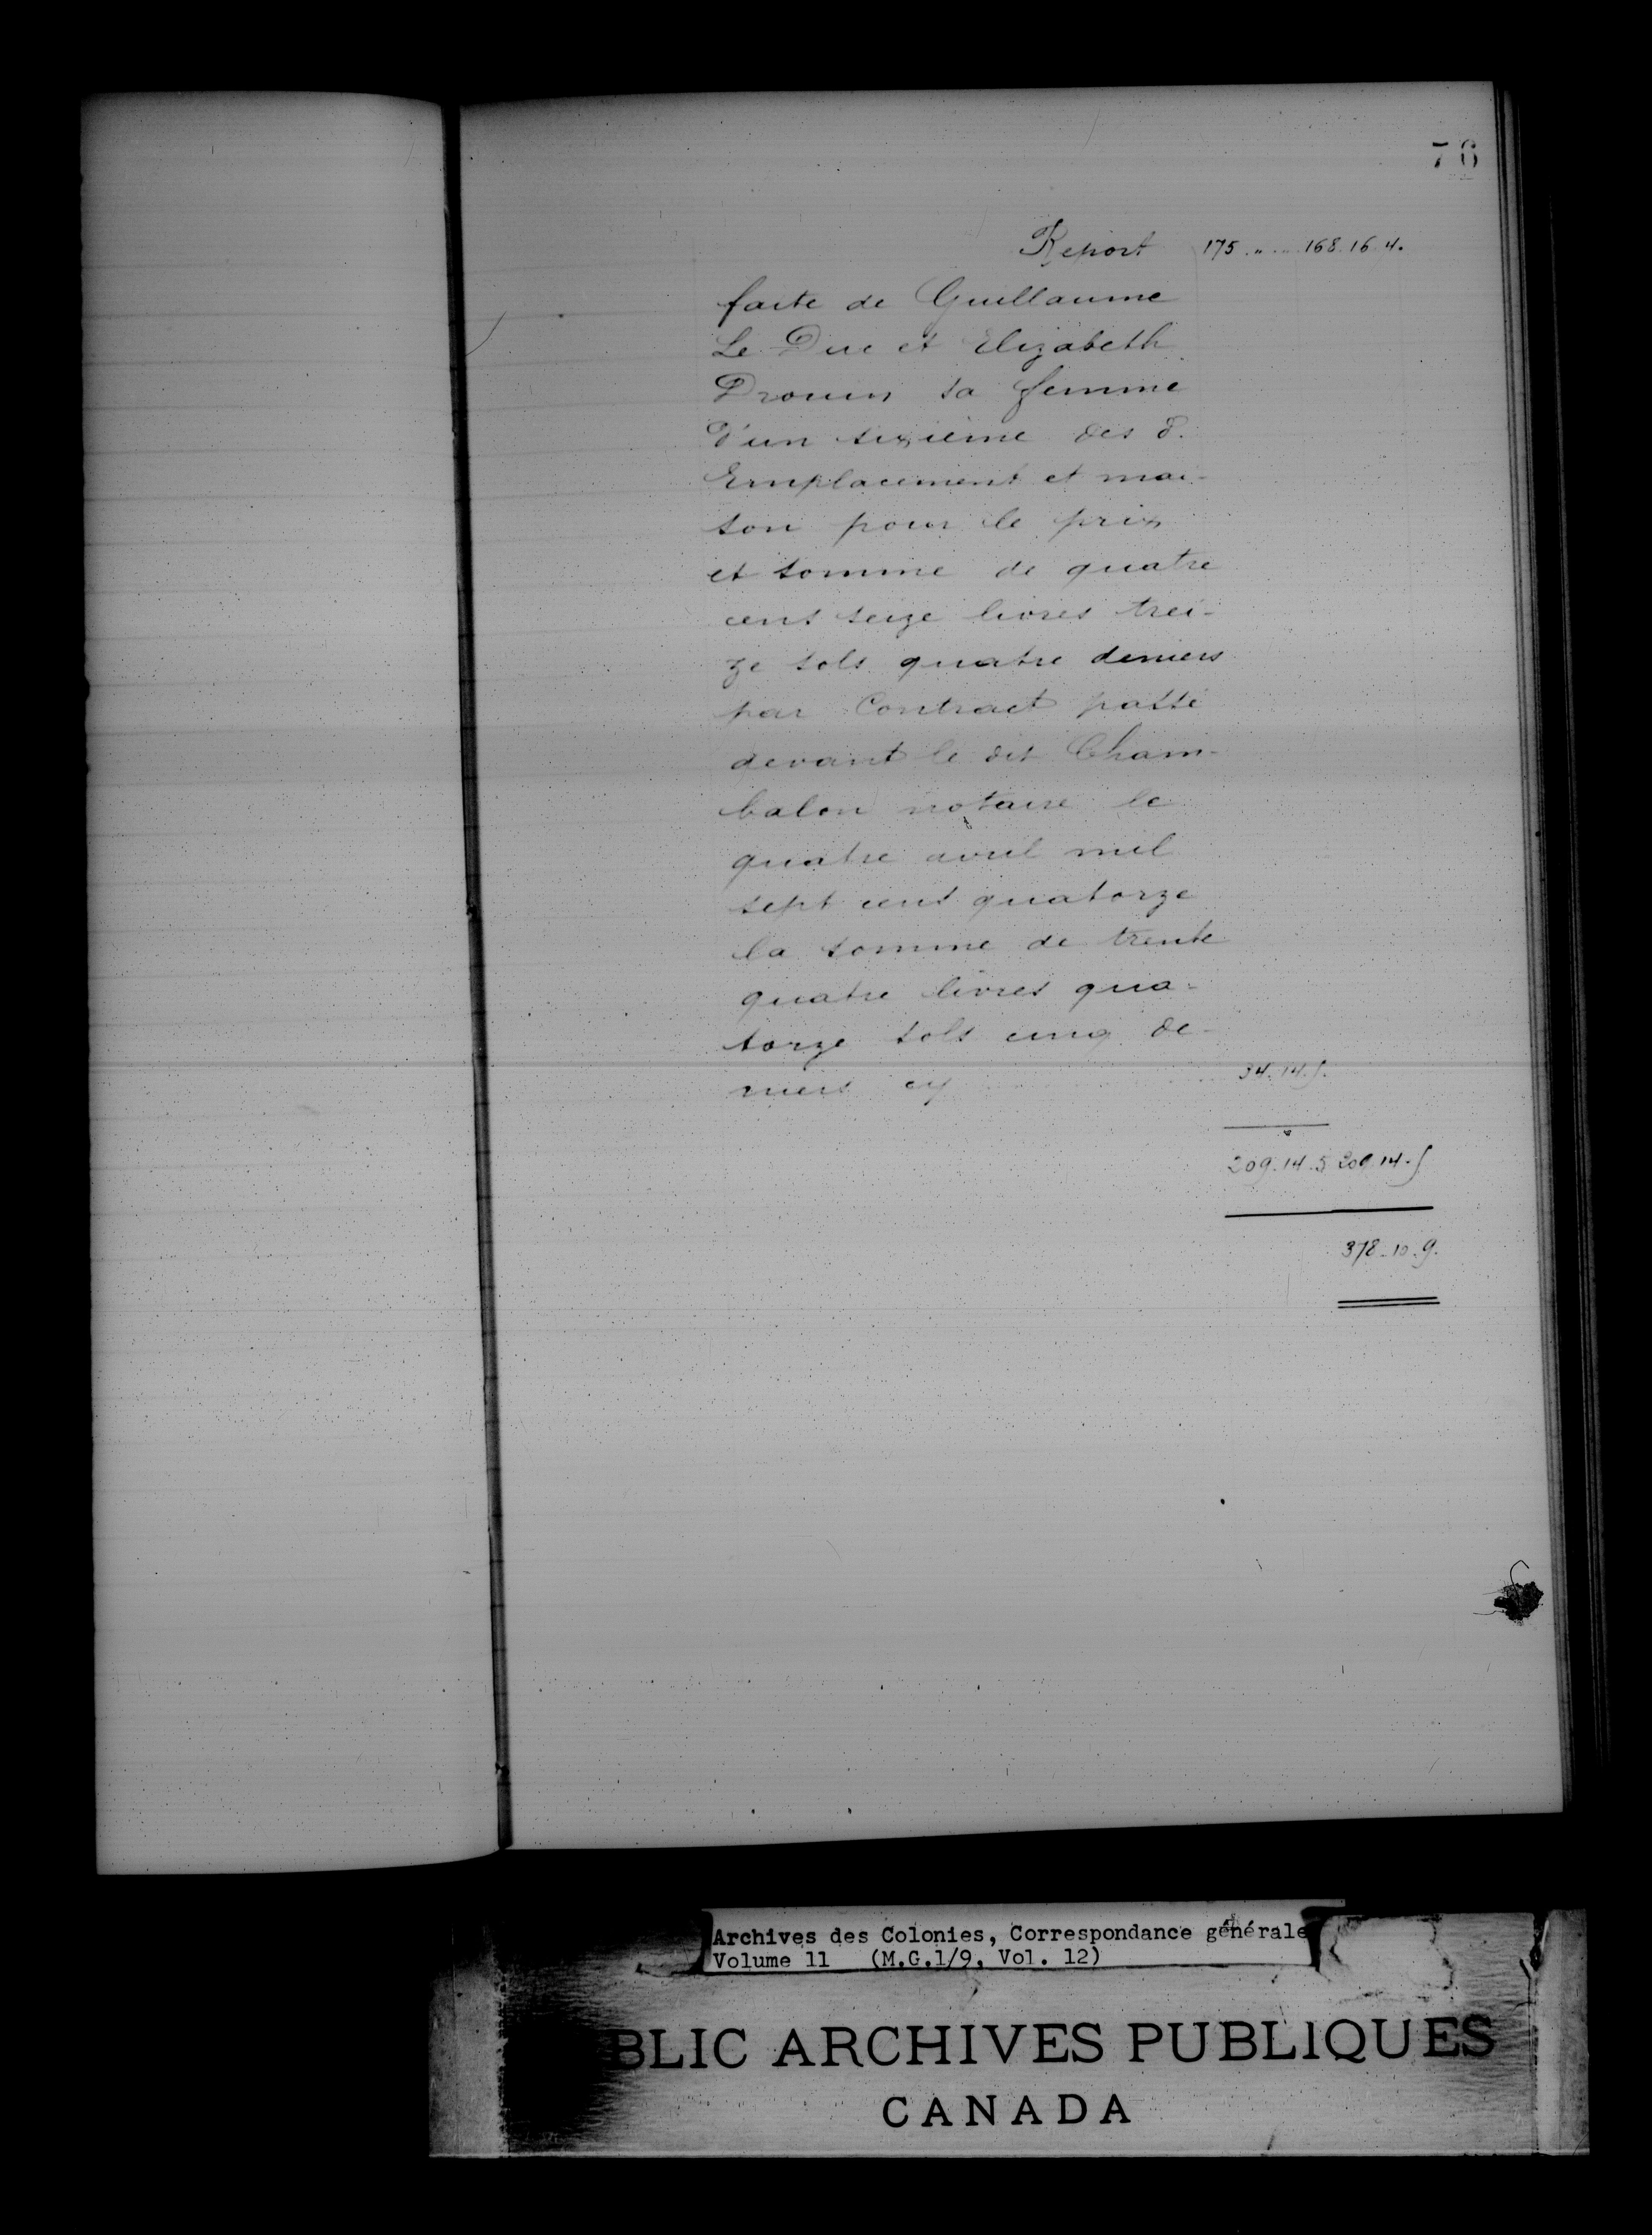 76
Report 175 . „ . „ 168. 16. 4.
faite de Guillaume
Le Duc et Elizabeth
Drouin sa femme
d'un sixième des d.
Emplacement et mai-
son pour le prix
et somme de quatre
cent seize livres trei-
ze sols quatre deniers
par Contract passé
devant le dit Cham-
balon notaire le
quatre avril mil
sept cent quatorze
la somme de trente
quatre livres qua-
torze sols cinq de-
niers cy 34. 14. 5.
209. 14. 5 209. 14. 5
378. 10. 9.
Archives des Colonies, Correspondance générale
Volume 11 (M.G.1/9, Vol. 12)
BLIC ARCHIVES PUBLIQUES
CANADA